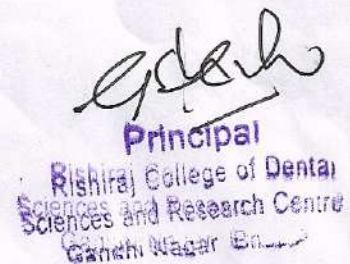 Principal
Rishiraj College of Dental
Sciences and Research Centre
Gandhi Nagar